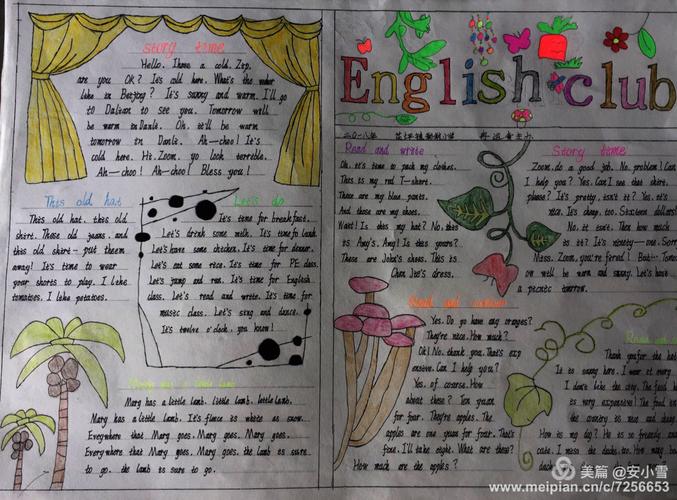 Story time
Hello. I have a cold. Zip,
are you OK? It's cold here. What's the
like in Beijing? It's sunny and warm. I'll go
to Dalian to see you. Tomorrow will
be warm in Oh, it'll be warm
tomorrow in Ah-choo! It's
cold here. Hi. Zoom. yo look terrible.
Ah-choo! Ah-choo! Bless you!
English club
This old hat
This old hat. this old
shirt. These old jeans. and
this old shirt- put them
away! It's time to wear
your shorts to play. I like
tomatoes. I like potatoes.
Let's do
It's time for breakfast.
Let's drink some milk. It's time fo lunch.
Let's have some chicken. It's time for dinner.
Let's eat some rice. It's time for PE class.
Let's jump and run. It's time for English
class. Let's read and write. It's time for
music class. Let's sing and dance.
It's twelve o'clock. you know!
little lamb
Mary has a little lamb. little lamb. little lamb.
Mary has a little lamb. It's fleece is white as snow.
Everywhere that Mary goes. Mary goes. Mary goes.
Everywhere that Mary goes. Mary goes. the lamb is sure to
go. the lamb is sure to go.
Read and write
Oh. it's time to pack my clothes.
This is my red T-shirt.
These are my blue pants.
And those are my shoes.
Wait! Is this my hat? No. this
is Amy's. Amy! Is this yours?
These are John's shoes. This is
Chen Jie's dress.
Story time
Zoom. do a good job. No. problem! Can
I help you? Yes. Can I see that shirt.
please? It's pretty. isn't it? Yes. it's
nice. It's cheap. too. Sixteen dollars!
No. it isn't. Then how much
is it? It's ninety-one. Sorry
Miss. Zoom. you're fired! But... Tomorrow
will be warm and sunny. Let's have
a picnic tomorrow.
Read and
Yes. Do yo have any oranges?
They're nice. How much?
Oh! No. thank you. That's exp
ensive. Can I help you?
Yes. of course. How
about these? Ten yuan
for four. They're apples. The
apples are one yuan for four. That's
fine. I'll take eight. What are them?
How much are the apples?
Read
Thank you for the hat
It is sunny here. I wear it every
I don't like the city. The food
is very expensive! The food
the country is nice and cheap
How is my dog? He is so friendly and
cute. I miss the ducks too. How many
ducks
美篇 @安小雪
www.meipian.cn/c/7256653